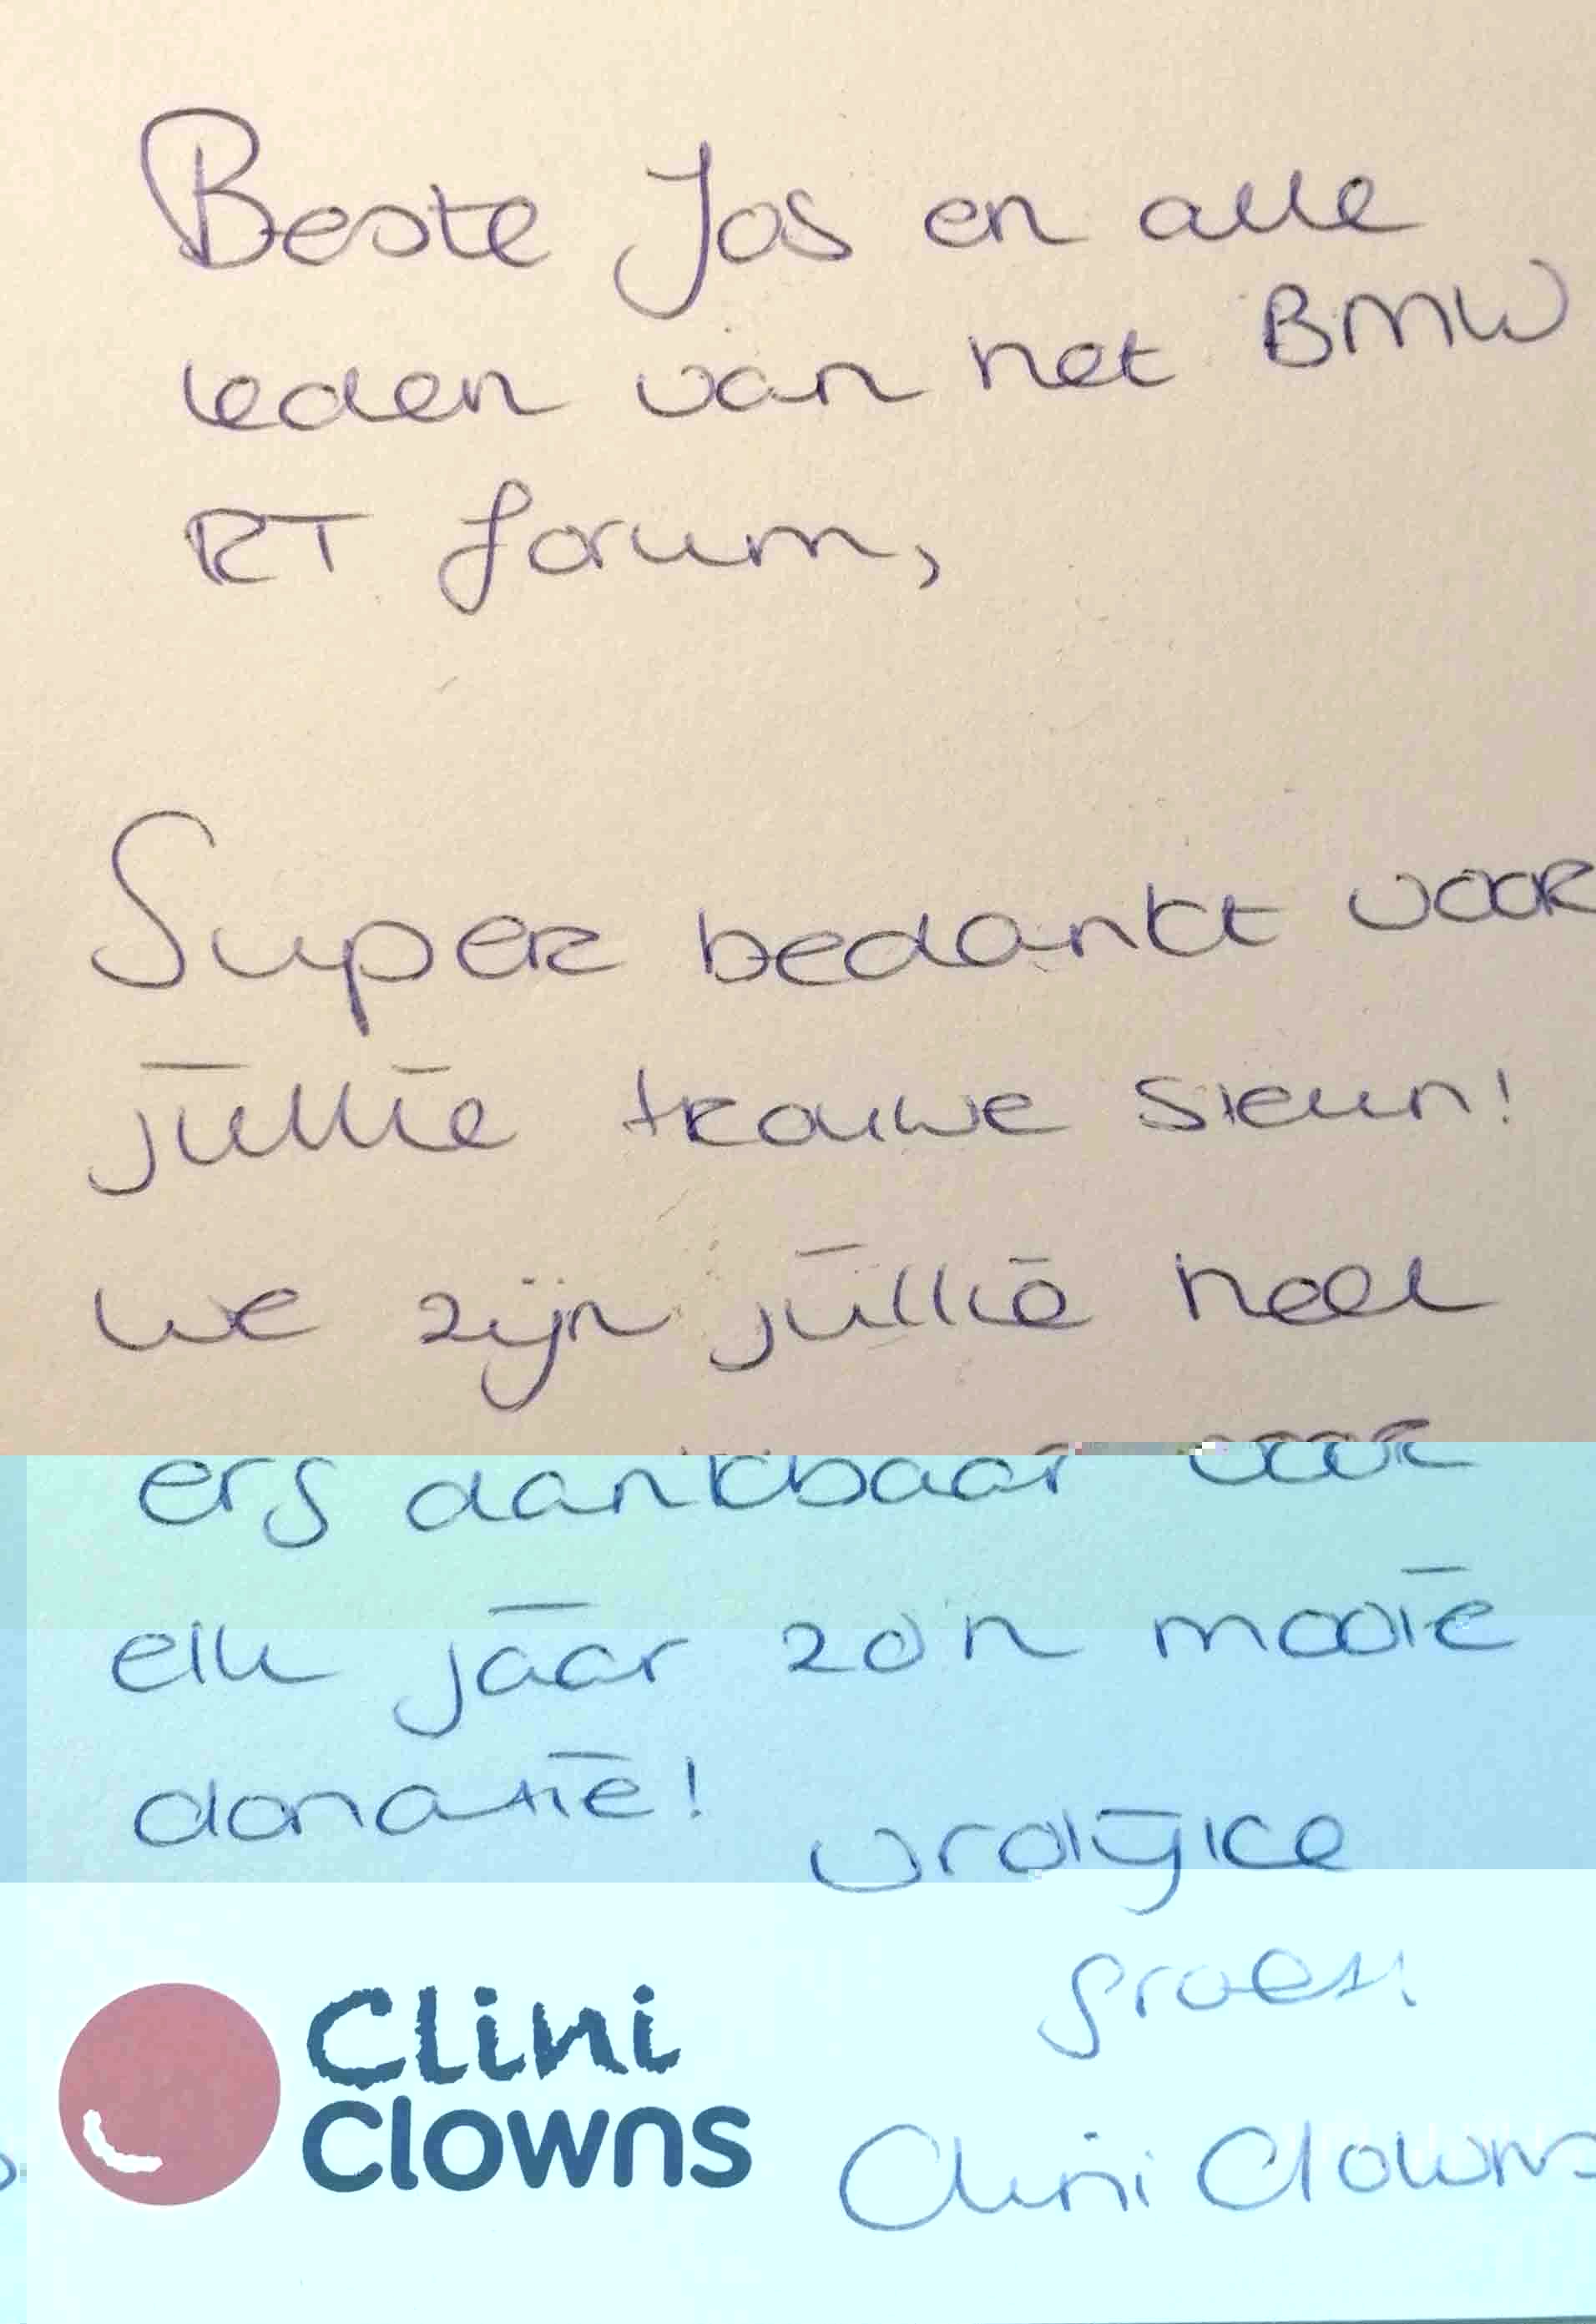 Beste Jos en alle
leden van het BMW
RT forum,
Super bedankt voor
jullie trouwe steun!
we zijn jullie heel
erg dankbaar voor
elk jaar zo'n mooie
donatie!
vrolijke
groet
Clini
Clowns
CliniClowns